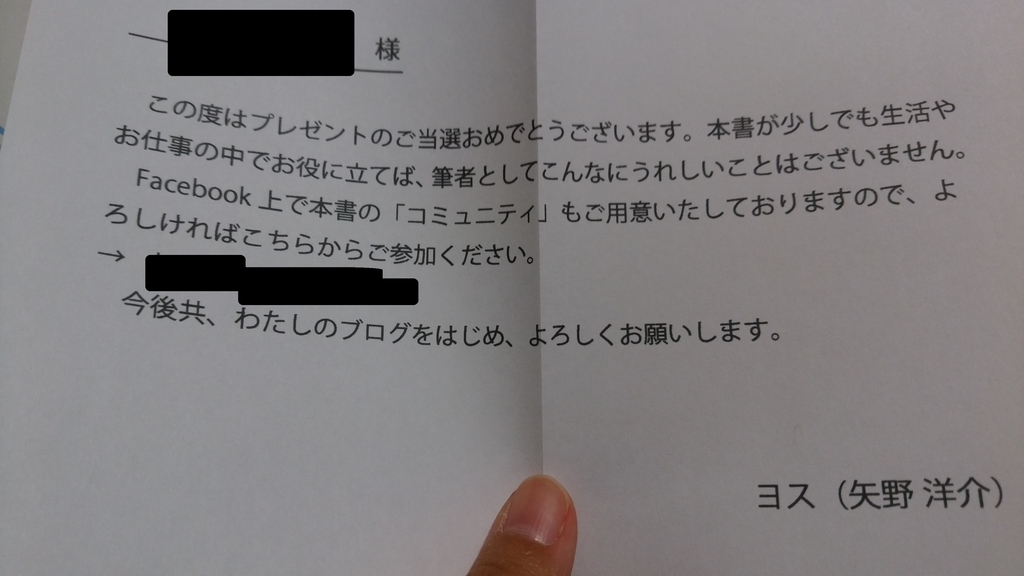 様
この度はプレゼントのご当選おめでとうございます。本書が少しでも生活や
お仕事の中でお役に立てば、筆者としてこんなにうれしいことはございません。
Facebook 上で本書の「コミュニティ」もご用意いたしておりますので、よ
ろしければこちらからご参加ください。
→
今後共、わたしのブログをはじめ、よろしくお願いします。
ヨス（矢野 洋介）